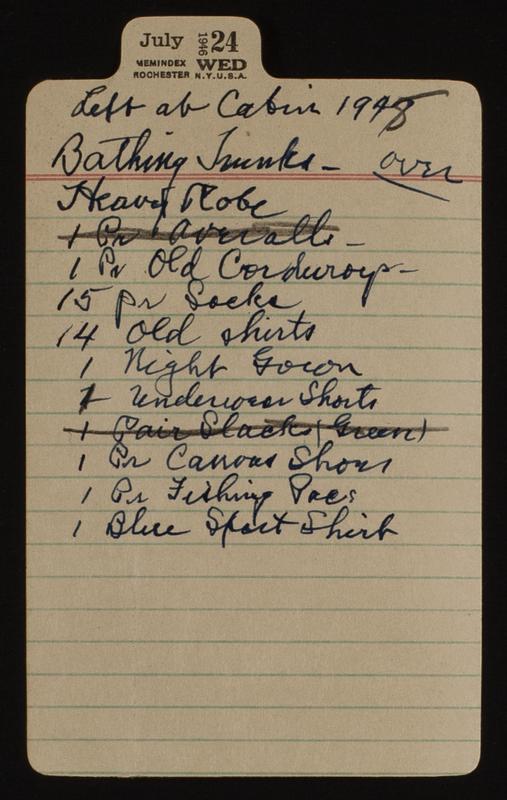 July 1946 24
MEMINDEX WED
ROCHESTER N.Y. U.S.A.
Left at Cabin 1948
Bathing Trunks - over
Heavy Robe
1 Pr Overalls -
1 Pr Old Corduroys -
15 pr Socks
14 Old shirts
1 Night Gown
1 Underwear Shorts
1 Pair Slacks (Green)
1 Pr Canvas Shoes
1 Pr Fishing Pacs
1 Blue Sport Shirt